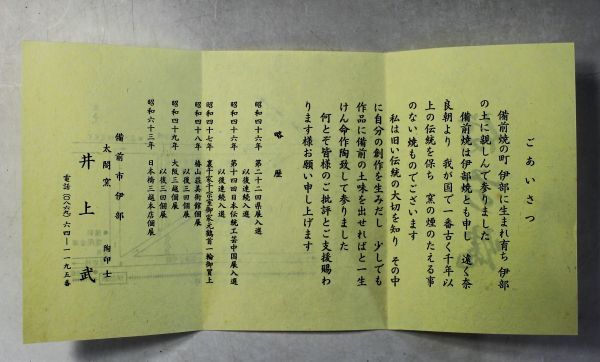 ごあいさつ
備前焼の町 伊部に生まれ育ち 伊部
の土に親しんで参りました
備前焼は伊部焼とも申し 遠く奈
良朝より 我が国で一番古く千年以
上の伝統を保ち 窯の煙のたえる事
のない焼ものでございます
私は旧い伝統の大切を知り その中
に自分の創作を生みだし 少しでも
作品に備前の土味を出せればと一生
けん命作陶致して参りました
何とぞ皆様のご批評とご支援賜わ
ります様お願い申し上げます
略歴
昭和四十六年 第二十二回県展入選
以後連続入選
昭和四十六年 第十四回日本伝統工芸中国展入選
以後連続入選
昭和四十七年 裏千家十五世御家元鶴首一輪御買上
昭和四十八年 椿山荘美術館個展
以後三回個展
昭和四十九年 大阪三越個展
以後三回個展
昭和六十三年 日本橋三越本店個展
備前市伊部
太閤窯 陶印士
井上武
電話(〇八六九)六四ー一一九五番